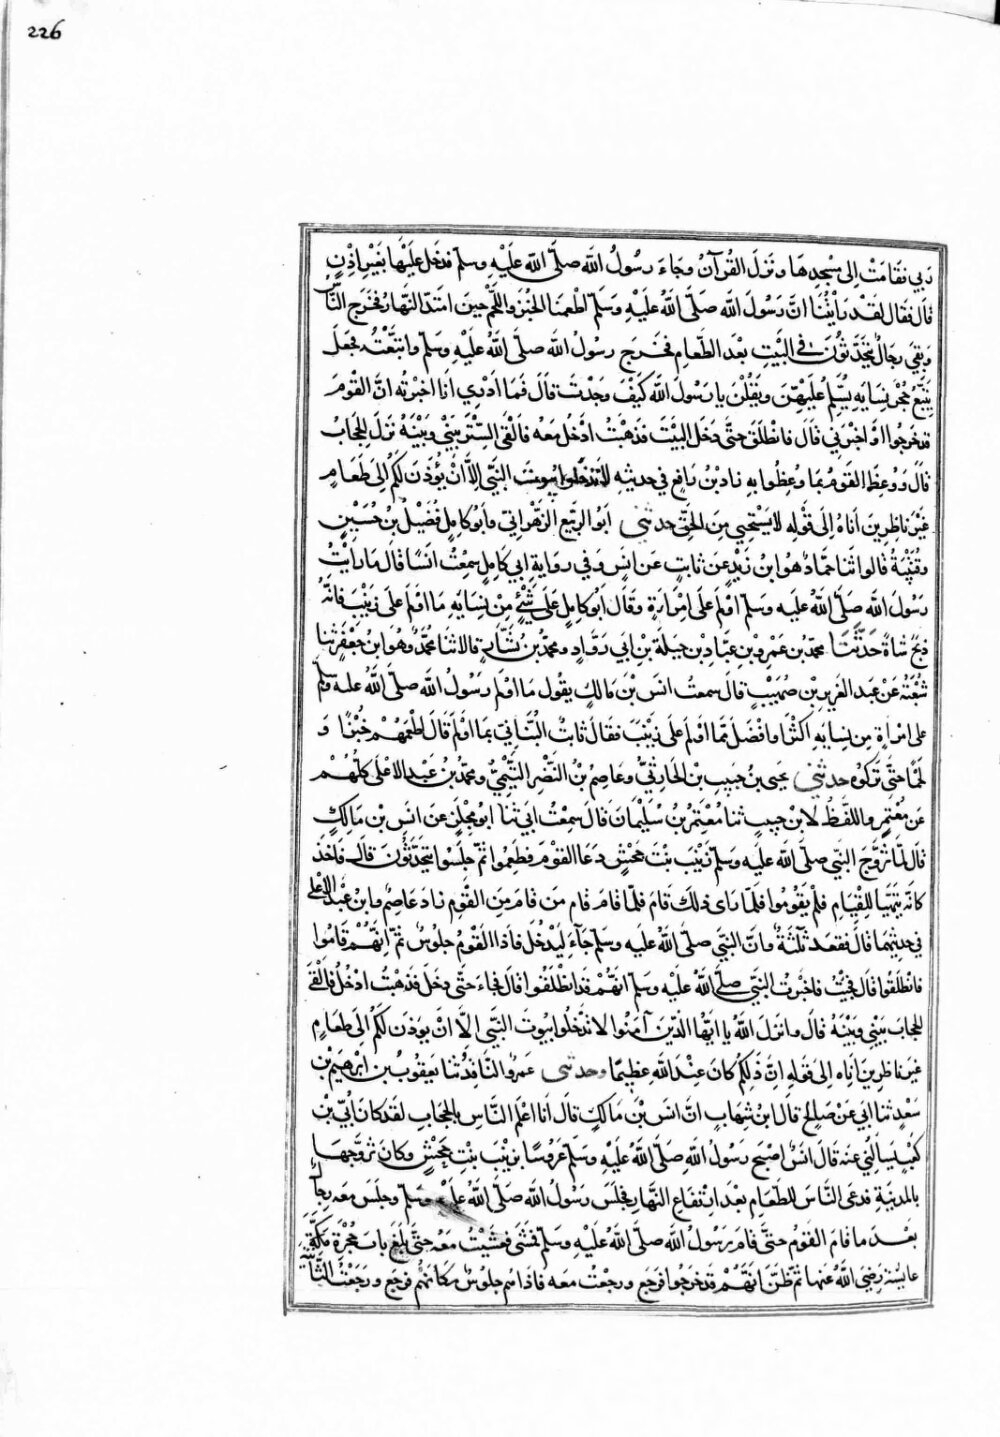 226
ربي فقامت الى مسجدها ونزل القرآن وجاء رسول الله صلى الله عليه وسلم فدخل عليها بغير اذن
قال فقال لقد رأيتنا ان رسول الله صلى الله عليه وسلم اطعمنا الخبز واللحم حين امتد النهار فخرج الناس
وبقي رجال يتحدثون في البيت بعد الطعام فخرج رسول الله صلى الله عليه وسلم واتبعته فجعل
يتتبع حجر نسايه يسلم عليهن ويقلن يا رسول الله كيف وجدت قال فما ادري انا اخبرته ان القوم
قد خرجوا او اخبرني قال فانطلق حتى دخل البيت فذهبت ادخل معه فالقى الستر بيني وبينه نزل الحجاب
قال ووعظ القوم بما وعظوا به زاد بن رافع في حديثه لا تدخلوا بيوت النبي الا ان يؤذن لكم الى طعام
غير ناظرين اناه الى قوله لا يستحيي من الحق حدثني ابو الربيع الزهراني وابو كامل فضيل بن حسين
وقتيبة قالوا ثنا حماد وهو ابن زيد عن ثابت عن انس وفي رواية ابي كامل سمعت انسا قال ما رايت
رسول الله صلى الله عليه وسلم اولم على امراة وقال ابو كامل على شيء من نسايه ما اولم على زينب فانه
ذبح شاة حدثنا محمد بن عمرو بن عباد بن جبلة بن ابي رواد ومحمد بن بشار قالا ثنا محمد وهو ابن جعفر ثنا
شعبة عن عبد العزيز بن صهيب قال سمعت انس بن مالك يقول ما اولم رسول الله صلى الله عليه وسلم
على امراة من نسايه اكثر وافضل مما اولم على زينب فقال ثابت البناني بما اولم قال اطعمهم خبزا و
لحما حتى تركوه حدثني يحيى بن حبيب بن الحارثي وعاصم بن النضر التيمي ومحمد بن عبد الاعلى كلهم
عن معتمر واللفظ لابن حبيب ثنا معتمر بن سليمان قال سمعت ابي ثنا ابو مجلز عن انس بن مالك
قال لما تزوج النبي صلى الله عليه وسلم زينب بنت جحش دعا القوم فطعموا ثم جلسوا يتحدثون قال فاخذ
كانه يتهيا للقيام فلم يقوموا فلما راى ذلك قام فلما قام قام من قام من القوم زاد عاصم وابن عبد الاعلى
في حديثهما قال فقعد ثلثة وان النبي صلى الله عليه وسلم جاء ليدخل فاذا القوم جلوس ثم انهم قاموا
فانطلقوا قال فجيت فاخبرت النبي صلى الله عليه وسلم انهم قد انطلقوا قال فجاء حتى دخل فذهبت ادخل فالقى
الحجاب بيني وبينه قال وانزل الله يا ايها الذين آمنوا لا تدخلوا بيوت النبي الا ان يوذن لكم الى طعام
غير ناظرين اناه الى قوله ان ذلكم كان عند الله عظيما وحدثني عمرو الناقد ثنا يعقوب بن ابرهيم بن
سعد ثنا ابي عن صالح قال ابن شهاب ان انس بن مالك قال انا اعلم الناس بالحجاب لقد كان ابي بن
كعب يسالني عنه قال انس اصبح رسول الله صلى الله عليه وسلم عروسا بزينب بنت جحش وكان تزوجها
بالمدينة فدعى الناس للطعام بعد ارتفاع النهار فجلس رسول الله صلى الله عليه وسلم وجلس معه رجال
بعد ما قام القوم حتى قام رسول الله صلى الله عليه وسلم فمشى فمشيت معه حتى بلغ باب حجرة
عايشة رضي الله عنها ثم ظن انهم قد خرجوا فرجع ورجعت معه فاذا هم جلوس مكانهم فرجع ورجعت الثانية